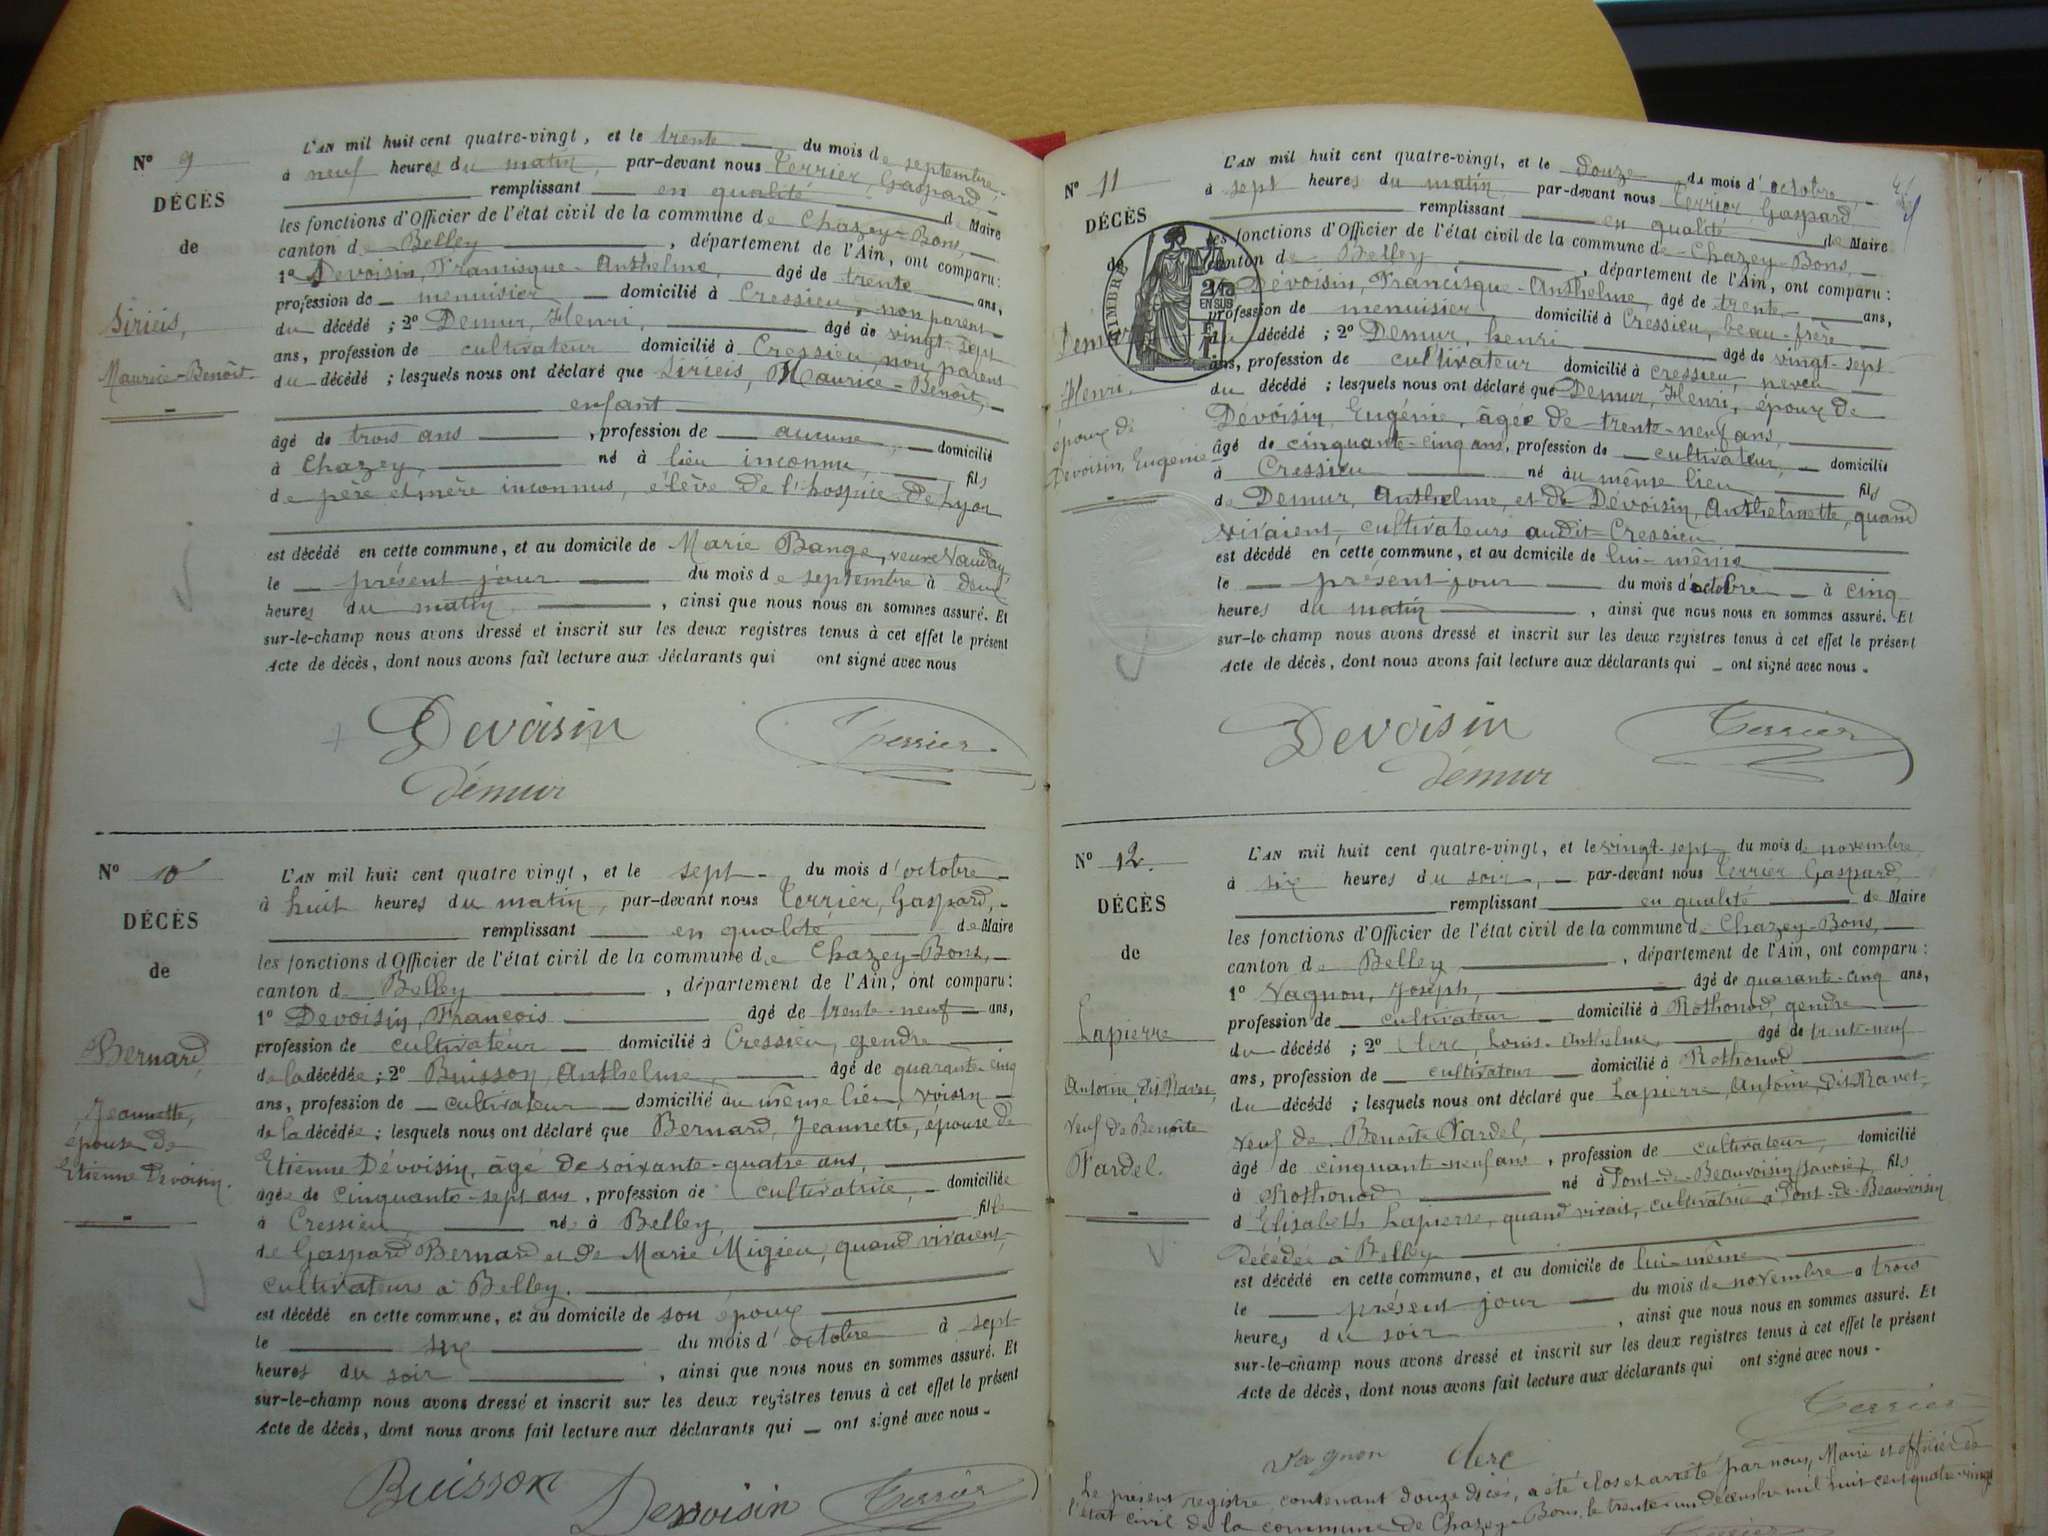 N° 9
DÉCÈS
de
Sirieis,
Maurice-Benoît.
L'AN mil huit cent quatre-vingt, et le trente du mois de septembre
à neuf heures du matin, par-devant nous Terrier, Gaspard,
remplissant en qualité de Maire
les fonctions d'Officier de l'état civil de la commune de Chazey-Bons,
canton de Belley, département de l'Ain, ont comparu:
1° Devoisin, Francisque-Anthelme, âgé de trente ans,
profession de menuisier domicilié à Cressieu, non parent
du décédé; 2° Demur, Henri, âgé de vingt-sept
ans, profession de cultivateur domicilié à Cressieu, non parent
du décédé; lesquels nous ont déclaré que Sirieis, Maurice-Benoît,
enfant
âgé de trois ans, profession de aucune, domicilié
à Chazey, né à lieu inconnu, fils
de père et mère inconnus, élève de l'hospice de Lyon
est décédé en cette commune, et au domicile de Marie Bange, veuve Vauday,
le présent jour du mois de septembre à deux
heures du matin, ainsi que nous nous en sommes assuré. Et
sur-le-champ nous avons dressé et inscrit sur les deux registres tenus à cet effet le présent
Acte de décès, dont nous avons fait lecture aux déclarants qui ont signé avec nous
Devoisin Terrier
Démur
N° 10
DÉCÈS
de
Bernard,
Jeannette,
épouse de
Etienne Devoisin.
L'AN mil huit cent quatre vingt, et le sept du mois d'octobre
à huit heures du matin, par-devant nous Terrier, Gaspard,
remplissant en qualité de Maire
les fonctions d'Officier de l'état civil de la commune de Chazey-Bons,
canton de Belley, département de l'Ain, ont comparu:
1° Devoisin, François âgé de trente-neuf ans,
profession de cultivateur domicilié à Cressieu, gendre
de la décédée; 2° Buisson, Anthelme, âgé de quarante-cinq
ans, profession de cultivateur domicilié au même lieu, voisin
de la décédée; lesquels nous ont déclaré que Bernard, Jeannette, épouse de
Etienne Dévoisin, âgé de soixante-quatre ans,
âgée de cinquante-sept ans, profession de cultivatrice, domiciliée
à Cressieu, née à Belley, fille
de Gaspard Bernard et de Marie Migieu, quand vivaient,
cultivateurs à Belley.
est décédé en cette commune, et au domicile de son époux
le six du mois d'octobre à sept
heures du soir, ainsi que nous nous en sommes assuré. Et
sur-le-champ nous avons dressé et inscrit sur les deux registres tenus à cet effet le présent
Acte de décès, dont nous avons fait lecture aux déclarants qui ont signé avec nous.
Buisson Devoisin Terrier
N° 11
DÉCÈS
de
TIMBRE
2/10
EN SUS
Demur
Henri,
époux de
Devoisin, Eugénie
L'AN mil huit cent quatre-vingt, et le douze du mois d'octobre,
à sept heures du matin, par-devant nous Terrier, Gaspard
remplissant en qualité de Maire
les fonctions d'Officier de l'état civil de la commune de Chazey-Bons,
canton de Belley, département de l'Ain, ont comparu:
Dévoisin, Francisque-Anthelme, âgé de trente ans,
profession de menuisier, domicilié à Cressieu, beau-frère
du décédé; 2° Demur, henri âgé de vingt-sept
ans, profession de cultivateur domicilié à Cressieu, neveu
du décédé; lesquels nous ont déclaré que Demur, Henri, époux de
Dévoisin, Eugénie, âgée de trente-neuf ans,
âgé de cinquante-cinq ans, profession de cultivateur, domicilié
à Cressieu né au même lieu fils
de Demur, Anthelme, et de Dévoisin, Anthelmette, quand
vivaient, cultivateurs audit Cressieu
est décédé en cette commune, et au domicile de lui-même
le présent jour du mois d'octobre à cinq
heures du matin, ainsi que nous nous en sommes assuré. Et
sur-le-champ nous avons dressé et inscrit sur les deux registres tenus à cet effet le présent
Acte de décès, dont nous avons fait lecture aux déclarants qui ont signé avec nous.
Devoisin Terrier
Démur
N° 12.
DÉCÈS
de
Lapierre
Antoine, dit Ravet,
Veuf de Benoîte
Fardel.
L'AN mil huit cent quatre-vingt, et le vingt-sept du mois de novembre
à six heures du soir, par-devant nous Terrier Gaspard,
remplissant en qualité de Maire
les fonctions d'Officier de l'état civil de la commune de Chazey-Bons,
canton de Belley, département de l'Ain, ont comparu:
1° Vagnon, Joseph, âgé de quarante-cinq ans,
profession de cultivateur domicilié à Rothonod, gendre
du décédé; 2° Clerc, Louis-Anthelme, âgé de trente-neuf
ans, profession de cultivateur domicilié à Rothonod
du décédé; lesquels nous ont déclaré que Lapierre, Antoine, dit Ravet,
Veuf de Benoîte Fardel,
âgé de cinquante-neuf ans, profession de cultivateur, domicilié
à Rothonod né à Pont-de-Beauvoisin (Savoie), fils
d'Elisabeth Lapierre, quand vivait, cultivatrice à Pont-de-Beauvoisin
décédée à Belley
est décédé en cette commune, et au domicile de lui-même
le présent jour du mois de novembre à trois
heures du soir, ainsi que nous nous en sommes assuré. Et
sur-le-champ nous avons dressé et inscrit sur les deux registres tenus à cet effet le présent
Acte de décès, dont nous avons fait lecture aux déclarants qui ont signé avec nous.
Terrier
Vagnon Clerc
Le présent registre, contenant douze décès, a été clos et arrêté par nous, Maire et officier de
l'état civil de la commune de Chazey-Bons, le trente-un décembre mil huit cent quatre-vingt
Terrier